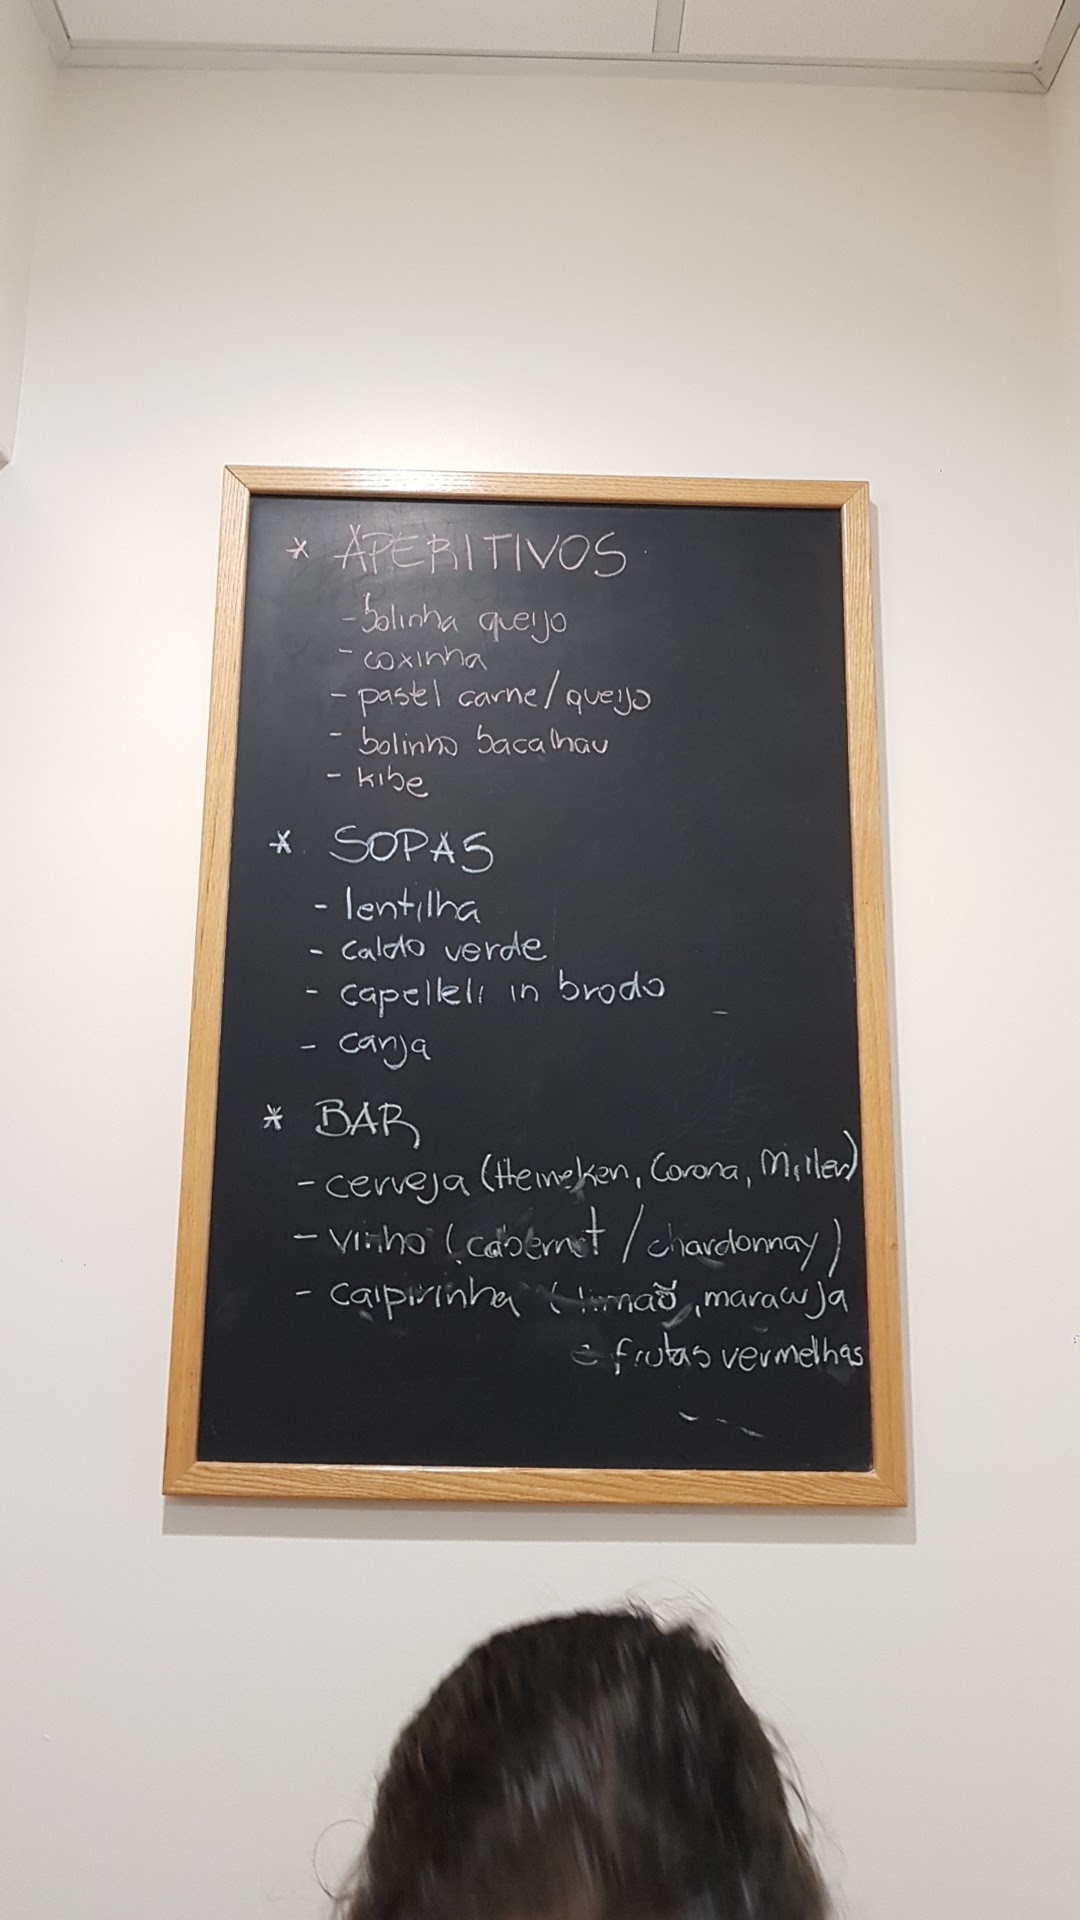 * APERITIVOS
- bolinha queijo
- coxinha
- pastel carne/queijo
- bolinho bacalhau
- kibe
* SOPAS
- lentilha
- caldo verde
- capelleli in brodo
- canja
* BAR
- cerveja (Heineken, Corona, Miller)
- vinho (cabernet / chardonnay)
- caipirinha ( limão, maracuja
e frutas vermelhas